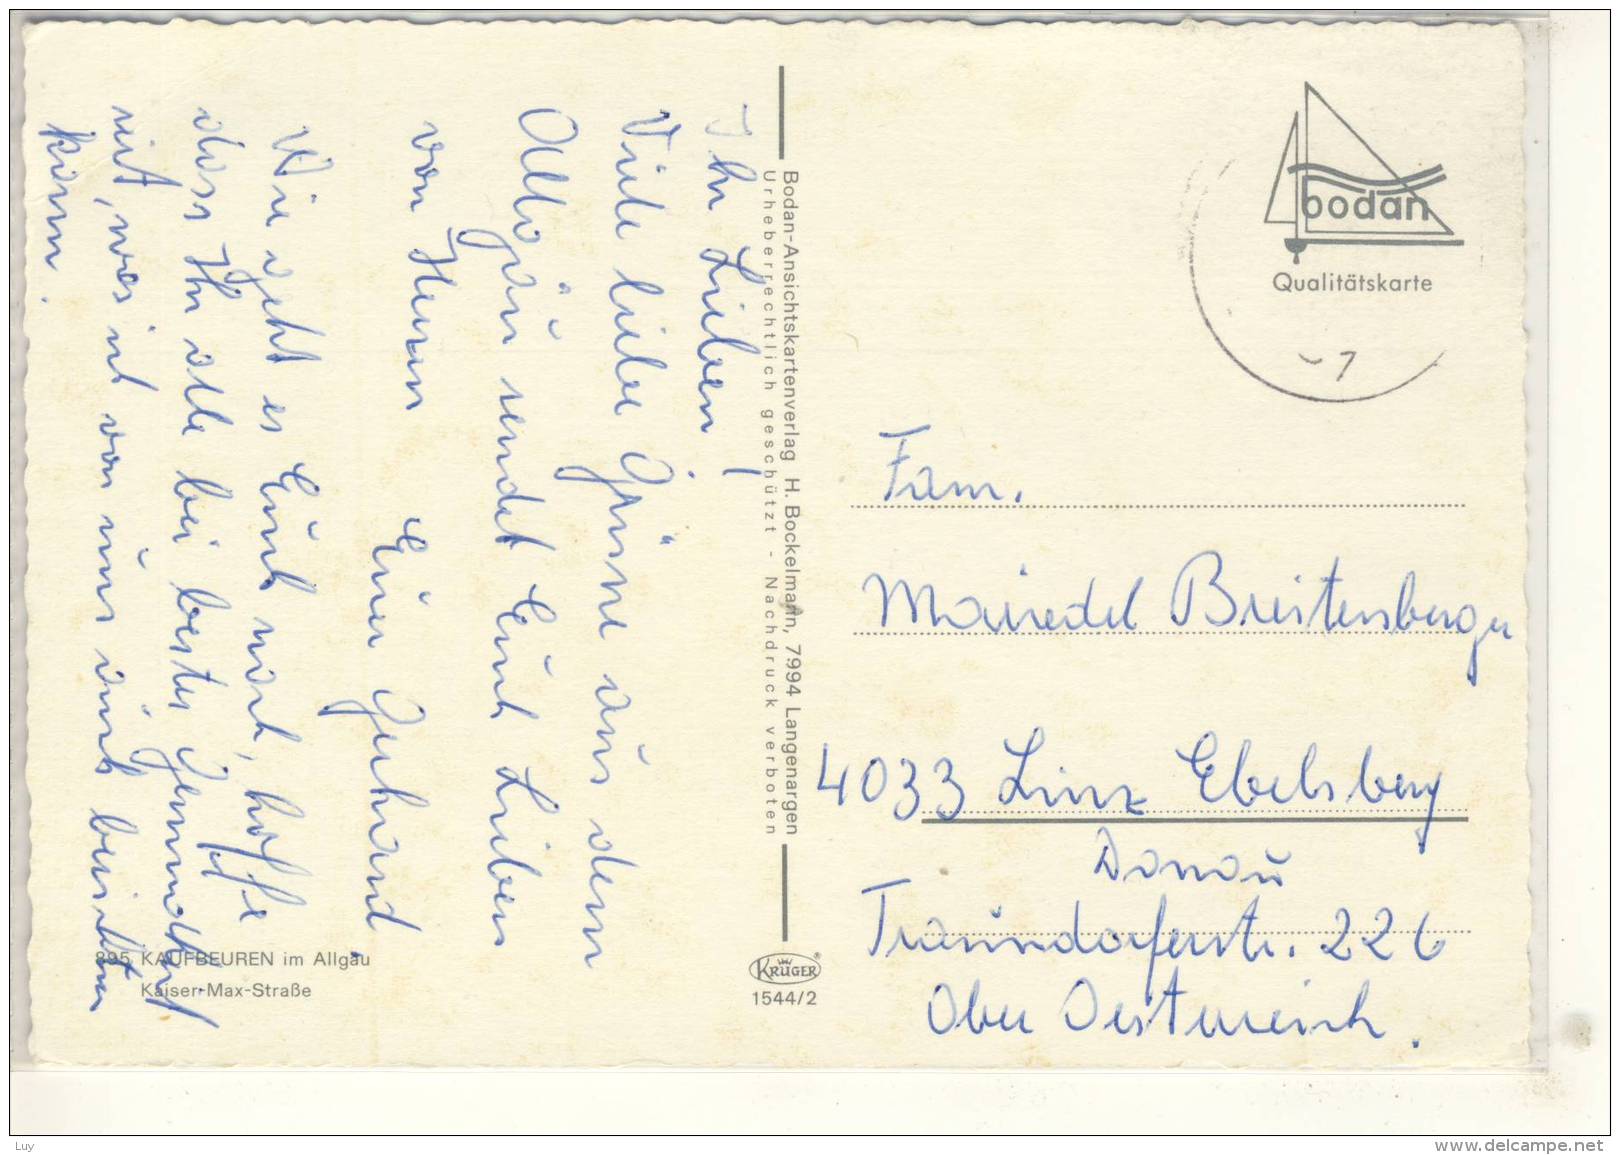 Ihr Lieben!
Viele liebe Grüsse aus dem
Allgäu sendet Euch Lieben
von Herzen
Euer Gerhard
Wie geht es Euch noch, hoffe
dass Ihr alle bei bester Gesundheit
seit, was ich von uns auch berichten
kann.
895 KAUFBEUREN im Allgäu
Kaiser-Max-Straße
Bodan-Ansichtskartenverlag H. Bockelmann, 7994 Langenargen
Urheberrechtlich geschützt - Nachdruck verboten
KRÜGER®
1544/2
bodan
Qualitätskarte
-7
Fam.
Breitenberger
4033 Linz Ebelsberg
Donau
Traundorferstr. 226
Ober Oesterreich.
Luy
www.delcampe.net